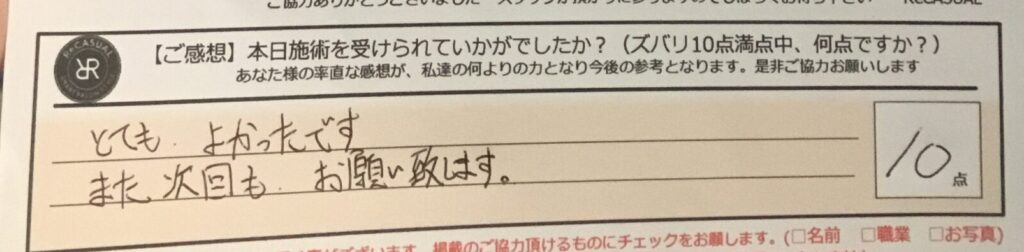 ご協力ありがとうございました
ReCASUAL
ReCASUAL
R
【ご感想】本日施術を受けられていかがでしたか？（ズバリ10点満点中、何点ですか？）
あなた様の率直な感想が、私達の何よりの力となり今後の参考となります。是非ご協力お願いします
とても、よかったです
また、次回も、お願い致します。
10点
掲載のご協力頂けるものにチェックをお願します。（□名前　□職業　□お写真）